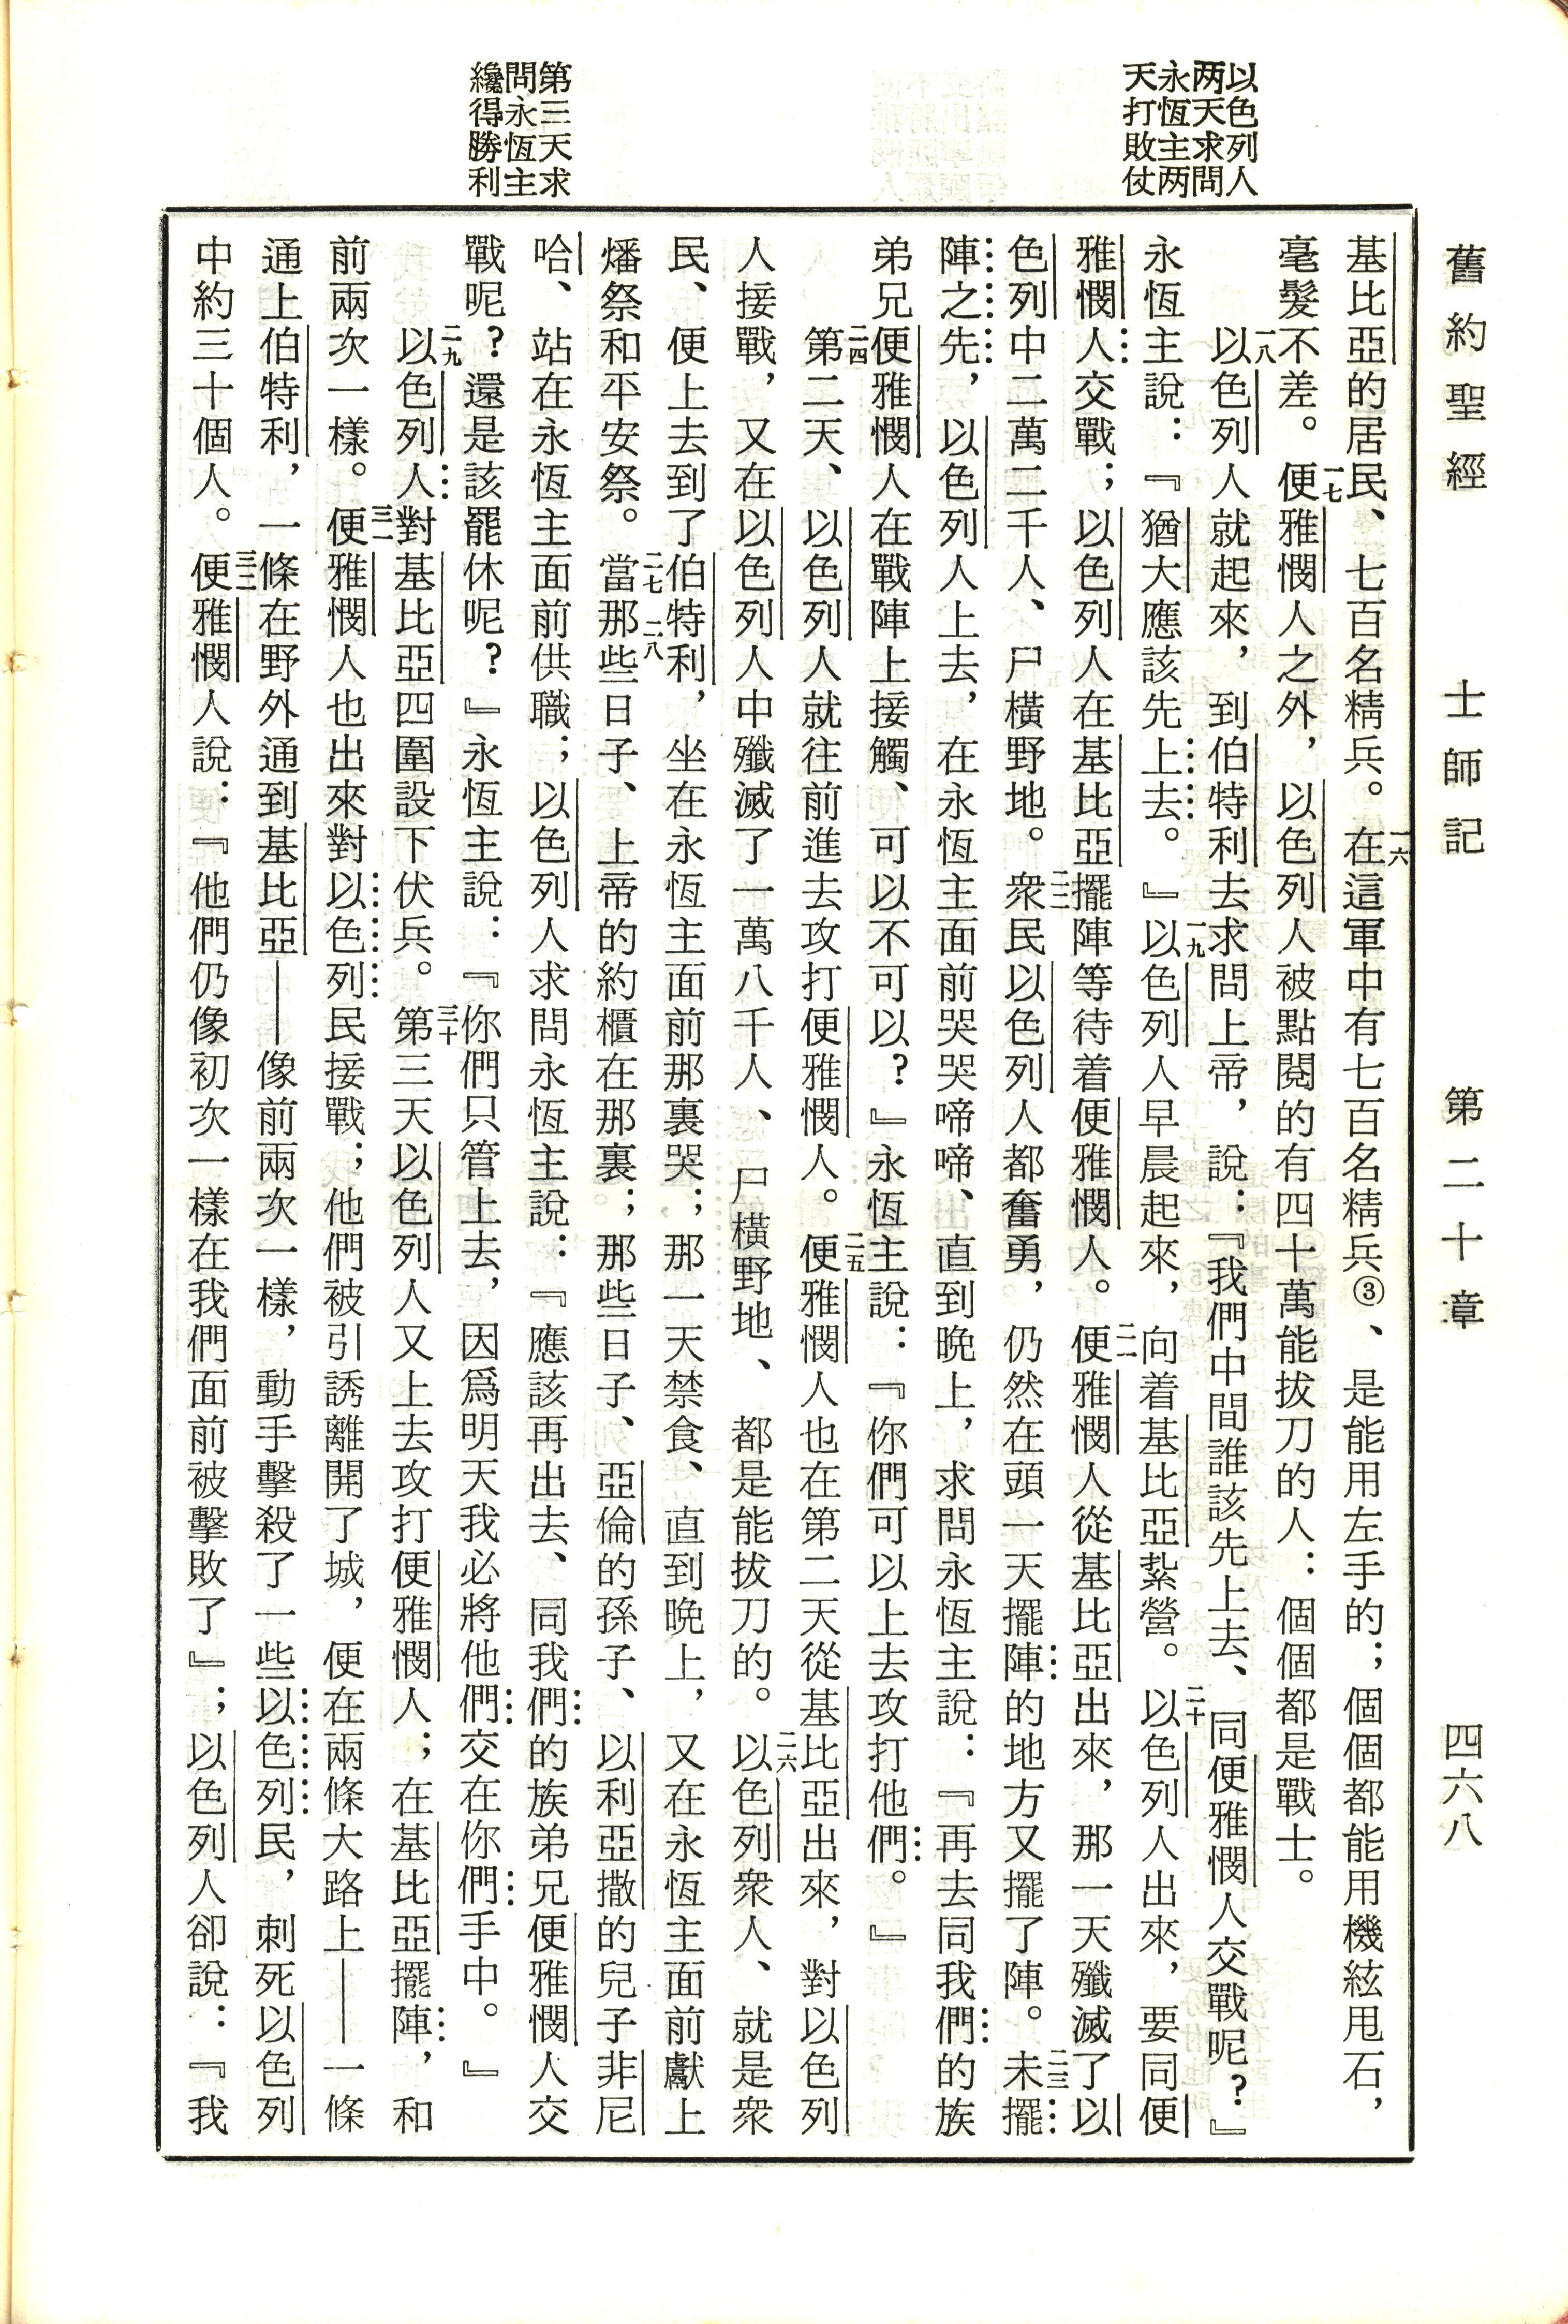 舊約聖經　士師記　第二十章　四六八
以色列人
兩天求問
永恆主兩
天打敗仗
第三天求
問永恆主
纔得勝利
基比亞的居民、七百名精兵。一六在這軍中有七百名精兵③、是能用左手的；個個都能用機絃甩石，
毫髮不差。一七便雅憫人之外，以色列人被點閱的有四十萬能拔刀的人：個個都是戰士。
一八以色列人就起來，到伯特利去求問上帝，說：『我們中間誰該先上去、同便雅憫人交戰呢？』
永恆主說：『猶大應該先上去。』一九以色列人早晨起來，向着基比亞紮營。二十以色列人出來，要同便
雅憫人交戰；以色列人在基比亞擺陣等待着便雅憫人。二一便雅憫人從基比亞出來，那一天殲滅了以
色列中二萬二千人、尸橫野地。二二衆民以色列人都奮勇，仍然在頭一天擺陣的地方又擺了陣。二三未擺
陣之先，以色列人上去，在永恆主面前哭哭啼啼、直到晚上，求問永恆主說：『再去同我們的族
弟兄便雅憫人在戰陣上接觸、可以不可以？』永恆主說：『你們可以上去攻打他們。』
二四第二天、以色列人就往前進去攻打便雅憫人。二五便雅憫人也在第二天從基比亞出來，對以色列
人接戰，又在以色列人中殲滅了一萬八千人、尸橫野地、都是能拔刀的。二六以色列衆人、就是衆
民、便上去到了伯特利，坐在永恆主面前那裏哭；那一天禁食、直到晚上，又在永恆主面前獻上
燔祭和平安祭。二七當那些日子、上帝的約櫃在那裏；二八那些日子、亞倫的孫子、以利亞撒的兒子非尼
哈、站在永恆主面前供職；以色列人求問永恆主說：『應該再出去、同我們的族弟兄便雅憫人交
戰呢？還是該罷休呢？』永恆主說：『你們只管上去，因爲明天我必將他們交在你們手中。』
二九以色列人對基比亞四圍設下伏兵。三十第三天以色列人又上去攻打便雅憫人；在基比亞擺陣，和
前兩次一樣。三一便雅憫人也出來對以色列民接戰；他們被引誘離開了城，便在兩條大路上——一條
通上伯特利，一條在野外通到基比亞——像前兩次一樣，動手擊殺了一些以色列民，刺死以色列
中約三十個人。三二便雅憫人說：『他們仍像初次一樣在我們面前被擊敗了』；以色列人卻說：『我